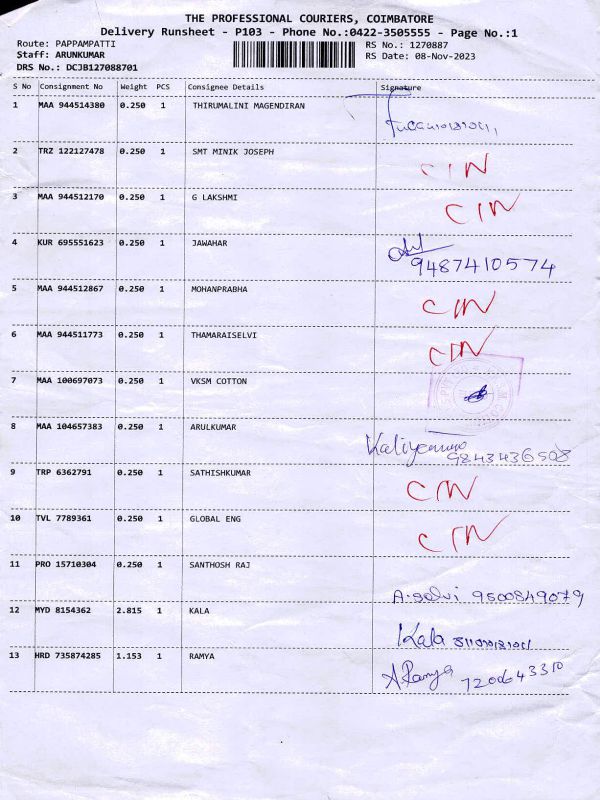 THE PROFESSIONAL COURIERS, COIMBATORE
Delivery Runsheet - P103 - Phone No.:0422-3505555 - Page No.:1
Route: PAPPAMPATTI RS No.: 1270887
Staff: ARUNKUMAR RS Date: 08-Nov-2023
DRS No.: DCJB127088701
S No Consignment No Weight PCS Consignee Details Signature
1 MAA 944514380 0.250 1 THIRUMALINI MAGENDIRAN
2 TRZ 122127478 0.250 1 SMT MINIK JOSEPH CIN
3 MAA 944512170 0.250 1 G LAKSHMI CIN
4 KUR 695551623 0.250 1 JAWAHAR
9487410574
5 MAA 944512867 0.250 1 MOHANPRABHA CIN
6 MAA 944511773 0.250 1 THAMARAISELVI CIN
7 MAA 100697073 0.250 1 VKSM COTTON
8 MAA 104657383 0.250 1 ARULKUMAR
9843436508
9 TRP 6362791 0.250 1 SATHISHKUMAR CIN
10 TVL 7789361 0.250 1 GLOBAL ENG CIN
11 PRO 15710304 0.250 1 SANTHOSH RAJ
A.Selvi 9500849079
12 MYD 8154362 2.815 1 KALA
Kala
13 HRD 735874285 1.153 1 RAMYA
A Ramya 7200643310